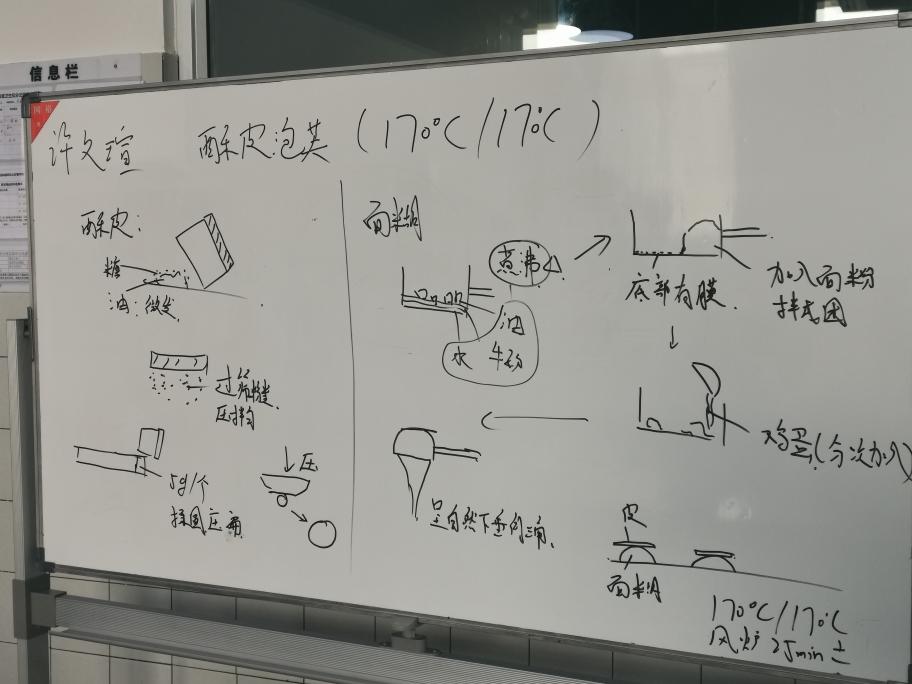 信息栏
许文瑄 酥皮泡芙 (170℃/170℃)
酥皮:
糖
油: 微发
过筛
压拌匀
5g/个
揉圆压扁
压
面糊
煮沸
油
水 牛奶
底部有膜.
加入面粉
拌成团
鸡蛋(分次加入)
呈自然下垂的三角.
皮
面糊
170℃/170℃
风炉 25min±